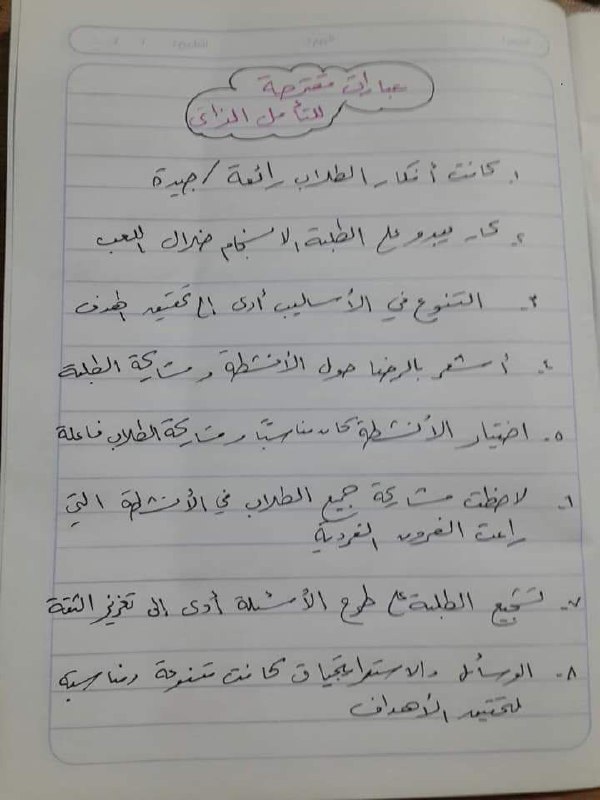 عبارات مقترحة
للتأمل الذاتي
١. كانت أفكار الطلاب رائعة / جيدة
٢. كان يبدو على الطلبة الانسجام خلال اللعب
٣. التنوع في الأساليب أدى إلى تحقيق الهدف
٤. أشعر بالرضا حول الأنشطة ومشاركة الطلبة
٥. اختيار الأنشطة كان مناسبًا ومشاركة الطلاب فاعلة
٦. لاحظت مشاركة جميع الطلاب في الأنشطة التي
راعت الفروق الفردية
٧. تشجيع الطلبة على طرح الأسئلة أدى إلى تعزيز الثقة
٨. الوسائل والاستراتيجيات كانت متنوعة ومناسبة
لتحقيق الأهداف